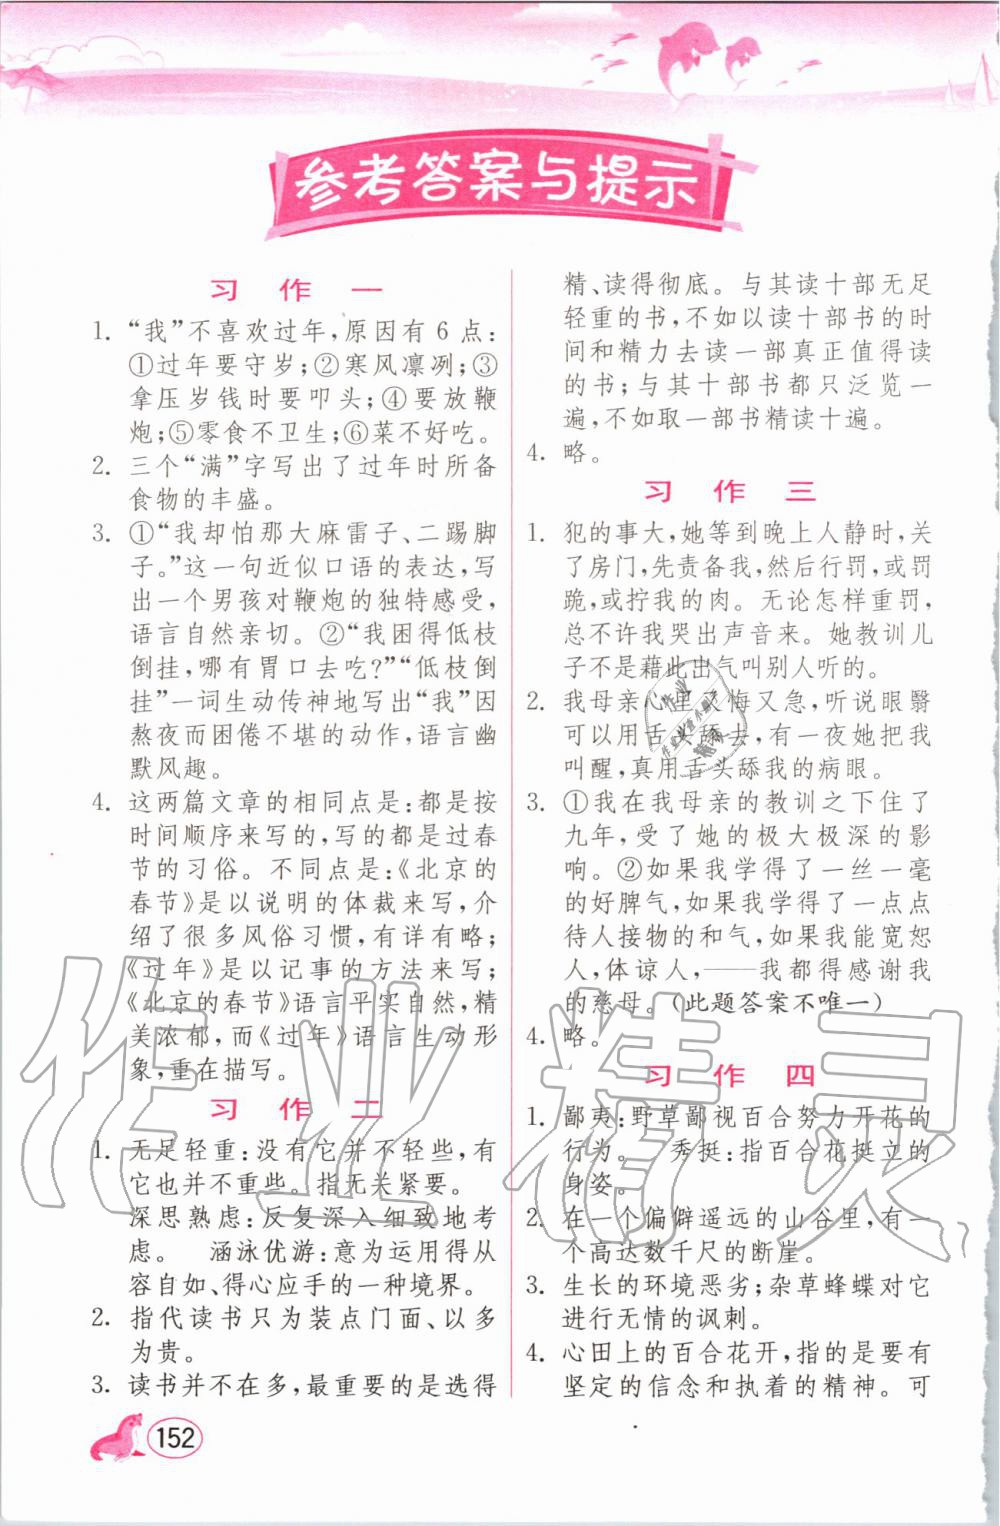 参考答案与提示
习 作 一
1. “我”不喜欢过年,原因有 6 点:
①过年要守岁;②寒风凛冽;③
拿压岁钱时要叩头;④要放鞭
炮;⑤零食不卫生;⑥菜不好吃。
2. 三个“满”字写出了过年时所备
食物的丰盛。
3. ①“我却怕那大麻雷子、二踢脚
子。”这一句近似口语的表达,写
出一个男孩对鞭炮的独特感受,
语言自然亲切。②“我困得低枝
倒挂,哪有胃口去吃?”“低枝倒
挂”一词生动传神地写出“我”因
熬夜而困倦不堪的动作,语言幽
默风趣。
4. 这两篇文章的相同点是:都是按
时间顺序来写的,写的都是过春
节的习俗。不同点是:《北京的
春节》是以说明的体裁来写,介
绍了很多风俗习惯,有详有略;
《过年》是以记事的方法来写。
《北京的春节》语言平实自然,精
美浓郁,而《过年》语言生动形
象,重在描写。
习 作 二
1. 无足轻重:没有它并不轻些,有
它也并不重些。指无关紧要。
深思熟虑:反复深入细致地考
虑。 涵泳优游:意为运用得从
容自如、得心应手的一种境界。
2. 指代读书只为装点门面、以多
为贵。
3. 读书并不在多,最重要的是选得
精、读得彻底。与其读十部无足
轻重的书,不如以读十部书的时
间和精力去读一部真正值得读
的书;与其十部书都只泛览一
遍,不如取一部书精读十遍。
4. 略。
习 作 三
1. 犯的事大,她等到晚上人静时,关
了房门,先责备我,然后行罚,或罚
跪,或拧我的肉。无论怎样重罚,
总不许我哭出声音来。她教训儿
子不是藉此出气叫别人听的。
2. 我母亲心里又悔又急,听说眼翳
可以用舌头舔去,有一夜她把我
叫醒,真用舌头舔我的病眼。
3. ①我在我母亲的教训之下住了
九年,受了她的极大极深的影
响。②如果我学得了一丝一毫
的好脾气,如果我学得了一点点
待人接物的和气,如果我能宽恕
人,体谅人,——我都得感谢我
的慈母。(此题答案不唯一)
4. 略。
习 作 四
1. 鄙夷:野草鄙视百合努力开花的
行为。 秀挺:指百合花挺立的
身姿。
2. 在一个偏僻遥远的山谷里,有一
个高达数千尺的断崖。
3. 生长的环境恶劣;杂草蜂蝶对它
进行无情的讽刺。
4. 心田上的百合花开,指的是要有
坚定的信念和执着的精神。可
152
作业精灵